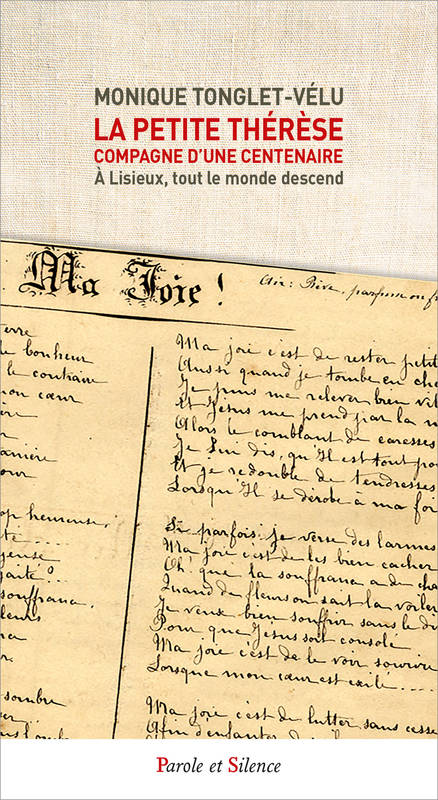 MONIQUE TONGLET-VÉLU
LA PETITE THÉRÈSE
COMPAGNE D'UNE CENTENAIRE
À Lisieux, tout le monde descend
Ma Joie !
Air: Rêve, parfum ou f
erre
e bonheur
le contraire
mon cœur
ère
anière
our
op heureuse,
te....
geuse?
faite?...
souffrance,
leurs
ra
on
sombre
Ma joie c'est de rester petit
Aussi quand je tombe en che
Je puis me relever bien vit
Et Jésus me prend par la m
Alors le comblant de caresses
Je Lui dis, qu'Il est tout pou
Et je redouble de tendresses
Lorsqu'Il se dérobe à ma foi
Si parfois je verse des larmes
Ma joie c'est de les bien cacher
Oh! que la souffrance a de cha
Quand de fleurs on sait la voiler
Je veux bien souffrir sans le di
Pour que Jésus soit consolé
Ma joie c'est de le voir sourire
Lorsque mon cœur est exilé....
Ma joie c'est de lutter sans cesse
Afin d'enfanter de
Parole et Silence